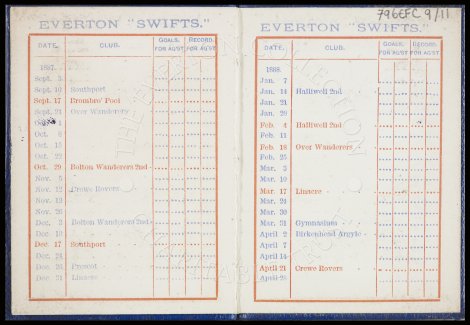 EVERTON "SWIFTS."
DATE. CLUB. GOALS. FOR AG'ST RECORD. FOR AG'ST
1887.
Sept. 3
Sept. 10 Southport
Sept. 17 Bromboro' Pool
Sept. 24 Over Wanderers
Oct. 1
Oct. 8
Oct. 15
Oct. 22
Oct. 29 Bolton Wanderers 2nd
Nov. 5
Nov. 12 Crewe Rovers
Nov. 19
Nov. 26
Dec. 3 Bolton Wanderers 2nd
Dec. 10
Dec. 17 Southport
Dec. 24
Dec. 26 Prescot
Dec. 31 Linacre
796EFC 9/11
EVERTON "SWIFTS."
DATE. CLUB. GOALS. FOR AG'ST RECORD. FOR AG'ST
1888.
Jan. 7
Jan. 14 Halliwell 2nd
Jan. 21
Jan. 28
Feb. 4 Halliwell 2nd
Feb. 11
Feb. 18 Over Wanderers
Feb. 25
Mar. 3
Mar. 10
Mar. 17 Linacre
Mar. 24
Mar. 30
Mar. 31 Gymnasium
April 2 Birkenhead Argyle
April 7
April 14
April 21 Crewe Rovers
April 28